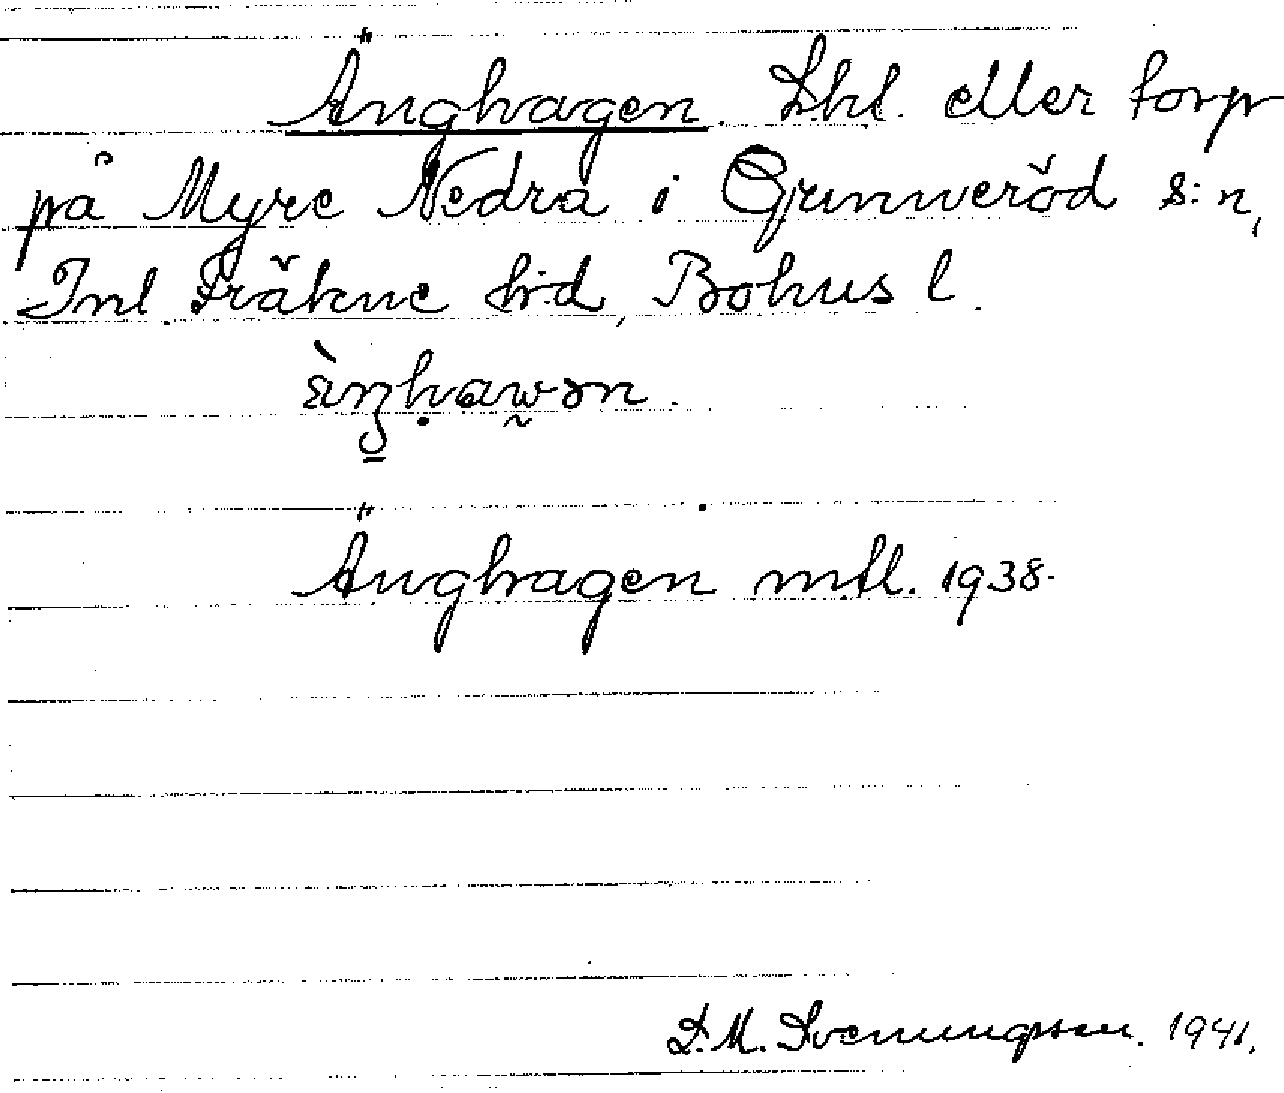 Änghagen. Lhl. eller torp
på Myre Nedra i Grinneröd s:n,
Inl. Fräkne h:d, Bohus l.
Änghagen mtl. 1938.
S. M. Svenungsson. 1941.